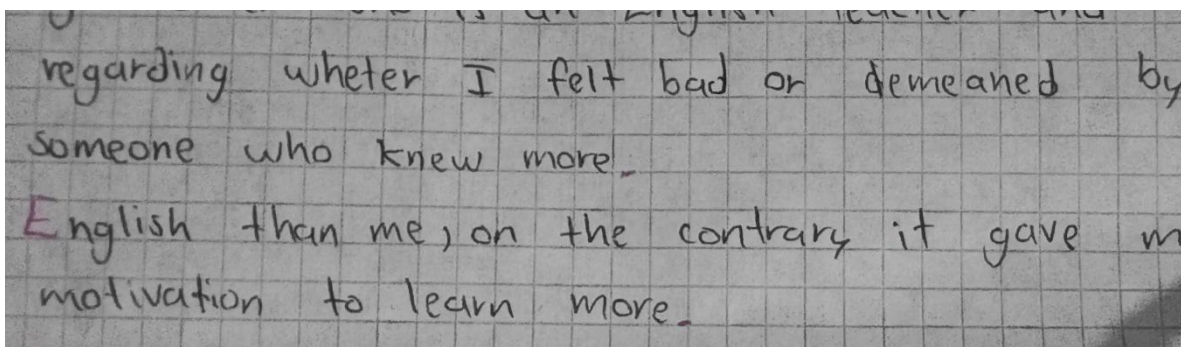 regarding wheter I felt bad or demeaned by
someone who knew more.
English than me, on the contrary it gave
motivation to learn more.